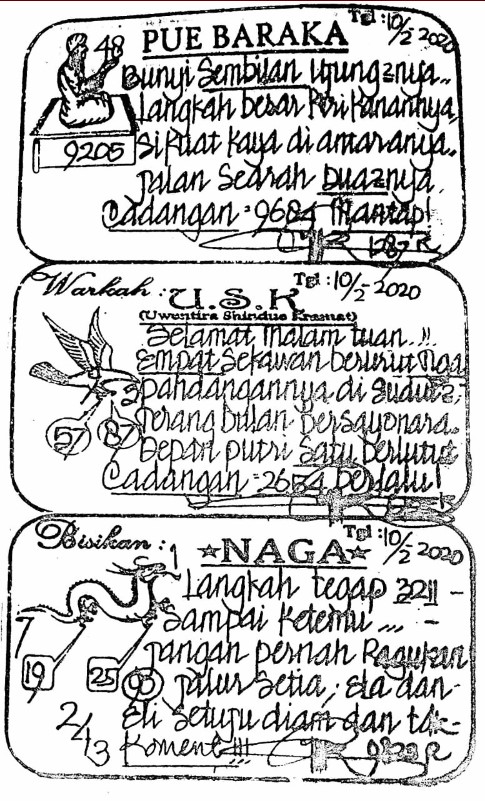 PUE BARAKA
Tgl : 10/2 2020
48
9205
Bunyi Sembilan Ujung2nya..
Langkah besar Kiri Kanannya,
Si Kuat Kaya di antaranya.
Jalan Searah Dua2nya.
Cadangan = 9684 Mantap!
Warkah :
U.S.K
Tgl : 10/2 - 2020
(Uwentira Shindue Kramat)
Selamat Malam tuan..!!
Empat Sekawan berurut Tiga
pandangannya di Sudut2,
Terang bulan Bersayonara.
Depan putri Satu berlutut
57
87
Cadangan = berlalu!
Bisikan :
NAGA
Tgl : 10/2 2020
1
7
19
25
90
2/4/3
Langkah tegap 3211 -
Sampai Ketemu ... -
Jangan pernah Ragukan
Jalur Setia, Ela dan
Eli Setuju diam dan tak-
Koment !!!